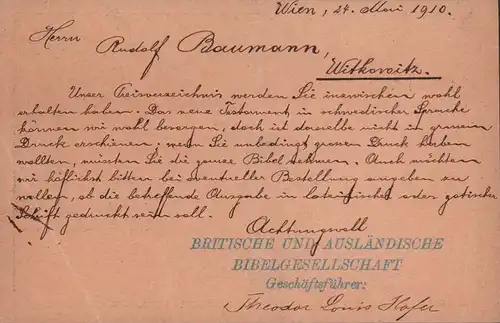 Wien, 24. Mai 1910.
Herrn
Rudolf Baumann,
Witkowitz.
Unser Preisverzeichnis werden Sie inzwischen wohl
erhalten haben. Das neue Testament, in schwedischer Sprache
können wir wohl besorgen, doch ist dasselbe nicht in grossem
Druck erschienen; wenn Sie unbedingt grossen Druck haben
wollten, müssten Sie die ganze Bibel nehmen. Auch möchten
wir höflichst bitten bei eventueller Bestellung angeben zu
wollen, ob die betreffende Ausgabe in lateinischer oder gotischer
Schrift gedruckt sein soll.
Achtungsvoll
BRITISCHE UND AUSLÄNDISCHE
BIBELGESELLSCHAFT
Geschäftsführer:
Theodor Louis Hofer